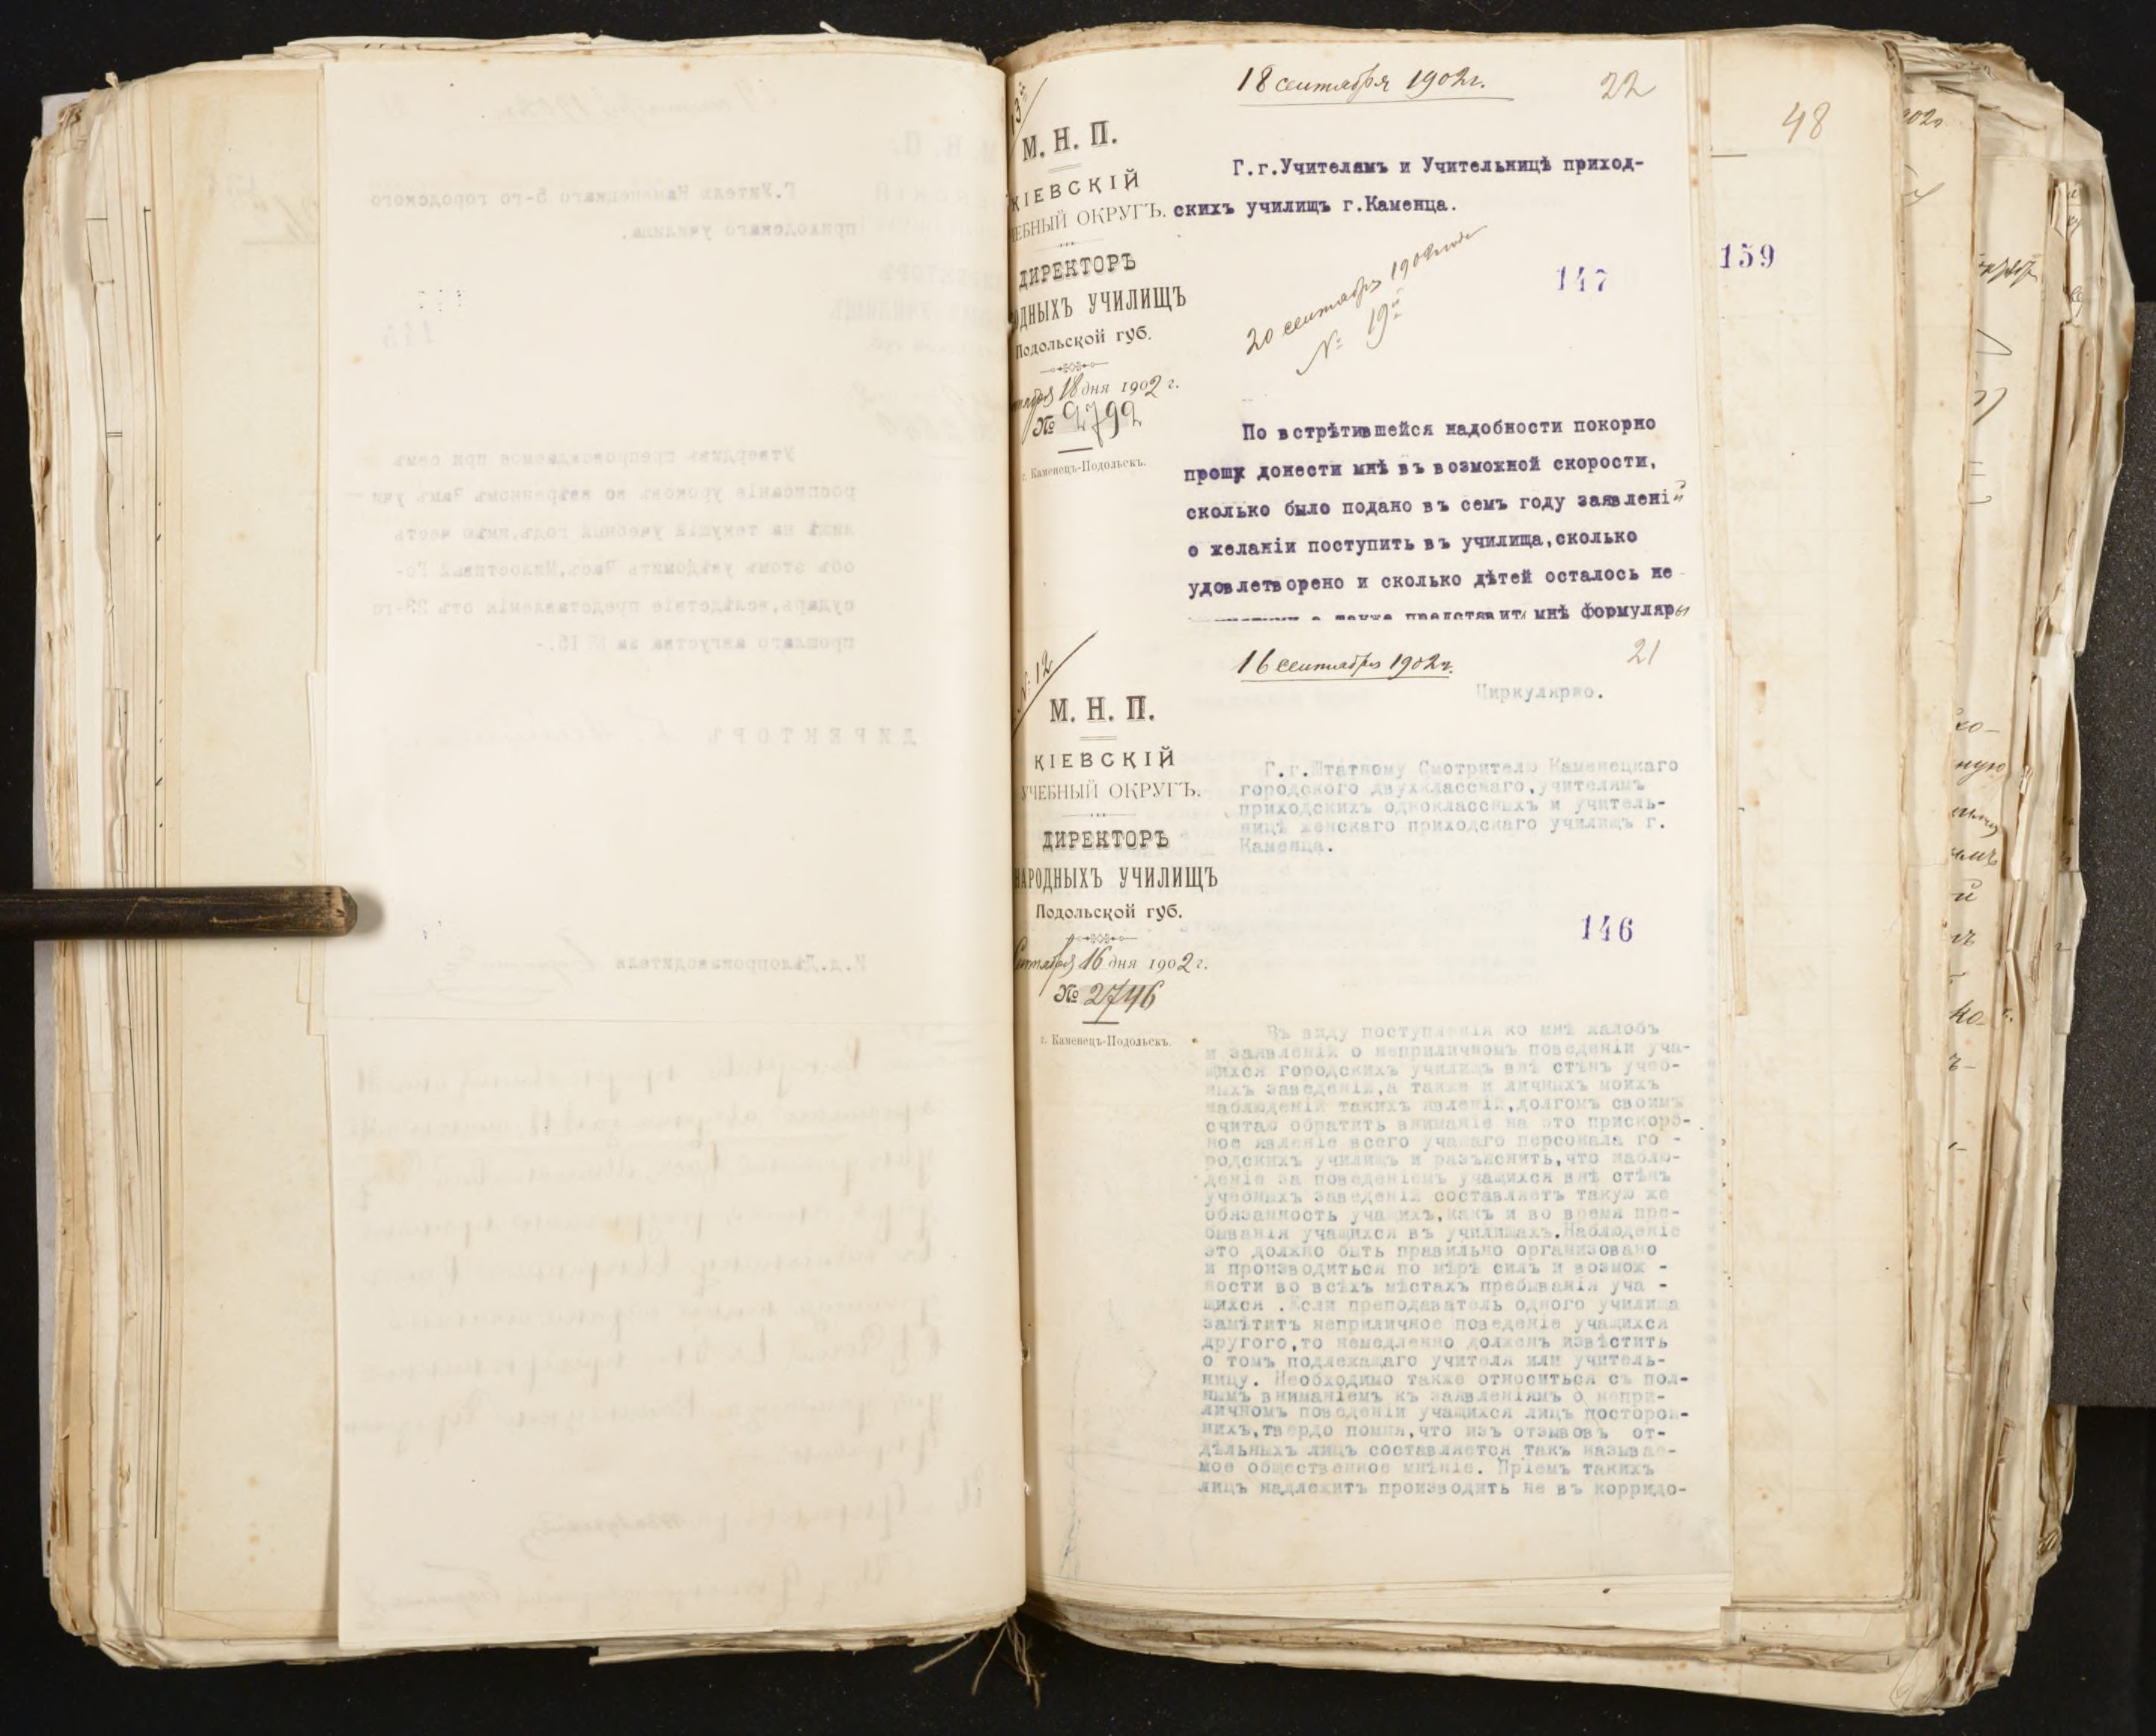 18 сентября 1902 г.
22
48
13
М. Н. П.
КІЕВСКІЙ
ЧЕБНЫЙ ОКРУГЪ.
ДИРЕКТОРЪ
ОДНЫХЪ УЧИЛИЩЪ
Подольской губ.
18 дня 1902 г.
№ 2792
г. Каменецъ-Подольскъ.
Г.г.Учителямъ и Учительницѣ приход-
скихъ училищъ г.Каменца.
147
159
20 сентября 1902 года
№ 19й
По встрѣтившейся надобности покорно
прошу донести мнѣ въ возможной скорости,
сколько было подано въ семъ году заявленій
о желаніи поступить въ училища,сколько
удовлетворено и сколько дѣтей осталось не
а также представить мнѣ формуляры
№ 12
16 сентября 1902 г.
21
Циркулярно.
М. Н. П.
КІЕВСКІЙ
УЧЕБНЫЙ ОКРУГЪ.
ДИРЕКТОРЪ
НАРОДНЫХЪ УЧИЛИЩЪ
Подольской губ.
Сентября 16 дня 1902 г.
№ 2746
г. Каменецъ-Подольскъ.
Г.г.Штатному Смотрителю Каменецкаго
городского двухкласснаго,учителямъ
приходскихъ одноклассныхъ и учитель-
ницѣ женскаго приходскаго училищъ г.
Каменца.
146
Въ виду поступленія ко мнѣ жалобъ
и заявленій о неприличномъ поведеніи уча-
щихся городскихъ училищъ внѣ стѣнъ учеб-
ныхъ заведеній,а также и личныхъ моихъ
наблюденій такихъ явленій,долгомъ своимъ
считаю обратить вниманіе на это прискорб-
ное явленіе всего учащаго персонала го -
родскихъ училищъ и разъяснить,что наблю-
деніе за поведеніемъ учащихся внѣ стѣнъ
учебныхъ заведеній составляетъ такую же
обязанность учащихъ,какъ и во время пре-
быванія учащихся въ училищахъ.Наблюденіе
это должно быть правильно организовано
и производиться по мѣрѣ силъ и возмож -
ности во всѣхъ мѣстахъ пребыванія уча -
щихся .Если преподаватель одного училища
замѣтитъ неприличное поведеніе учащихся
другого,то немедленно долженъ извѣстить
о томъ подлежащаго учителя или учитель-
ницу. Необходимо также относиться съ пол-
нымъ вниманіемъ къ заявленіямъ о непри-
личномъ поведеніи учащихся лицъ посторон-
нихъ,твердо помня,что изъ отзывовъ от-
дѣльныхъ лицъ составляется такъ называе-
мое общественное мнѣніе. Пріемъ такихъ
лицъ надлежитъ производить не въ корридо-